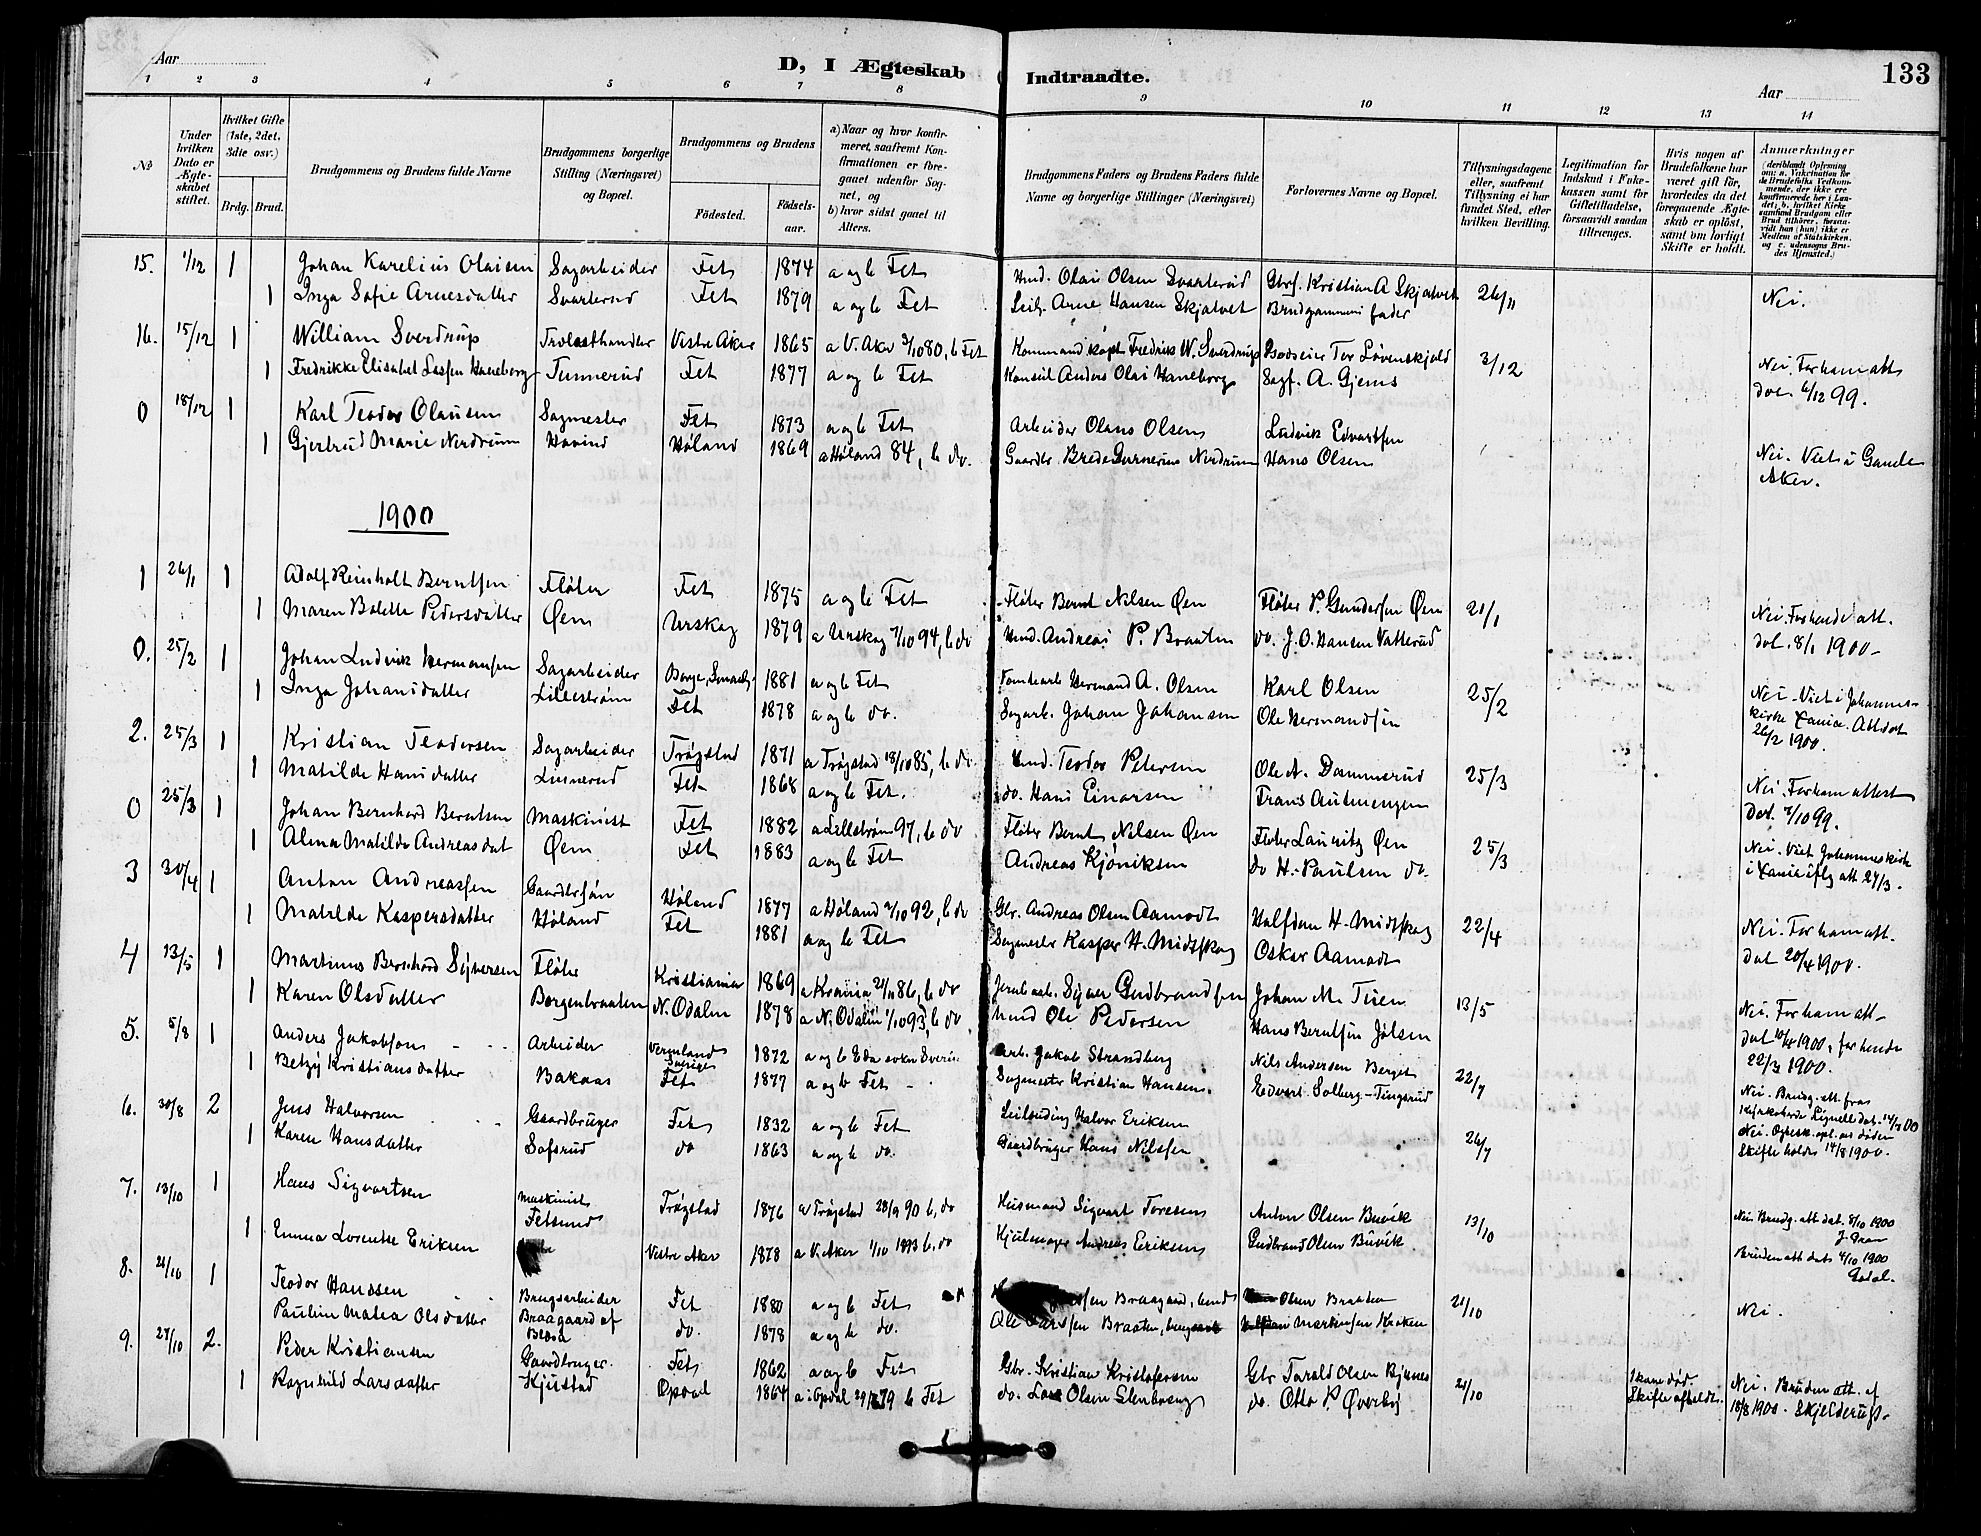 133
Aar
D, I Ægteskab Indtraadte.
Aar
1 2 3 4 5 6 7 8 9 10 11 12 13 14
No
Under hvilken Dato er Ægteskabet stiftet.
Hvilket Gifte (1ste, 2det, 3die osv.)
Brdg. Brud.
Brudgommens og Brudens fulde Navne
Brudgommens borgerlige Stilling (Næringsvei) og Bopæl.
Brudgommens og Brudens
Fødested.
Fødselsaar.
a) Naar og hvor konfirmeret, saafremt Konfirmationen er foregaaet udenfor Sognet, og
b) hvor sidst gaaet til Alters.
Brudgommens Faders og Brudens Faders fulde Navne og borgerlige Stillinger (Næringsvei)
Forlovernes Navne og Bopæl.
Tillysningsdagene eller, saafremt Tillysning ei har fundet Sted, efter hvilken Bevilling.
Legitimation for Indskud i Enkekassen samt for Giftetilladelse, forsaavidt saadan tiltrænges.
Hvis nogen af Brudefolkene har været gift før, hvorledes da det foregaaende Ægteskab er opløst, samt om lovligt Skifte er holdt.
Anmærkninger
(deriblandt Oplysning om: a. Vakcination for de Brudefolks Vedkommende, der ikke ere konfirmerede her i Landet; b. hvilket Kirkesamfund Brudgom eller Brud tilhører, forsaavidt han (hun) ikke er Medlem af Statskirken, og c. udensogns Brudes Hjemsted.)
15. 1/12 1 Johan Karelius Olaisen Sagarbeider Fet 1874 a og b Fet Hmd. Olai Olsen Svarterud Gbrf. Kristian A Skjatvet 26/11 Nei.
1 Inga Sofie Arnesdatter Svarterud Fet 1879 a og b Fet Leil. Arne Hansen Skjatvet Brudgommens fader
16. 15/12 1 William Sverdrup Trælasthandler Vestre Aker 1865 a V. Aker 3/10 80, b Fet Kommand.kapt Fredrik W. Sverdrup Godseier Tor Løvenskjold 3/12 Nei. For ham att
1 Fredrikke Elisabet Lassen Haneborg Tunnerud Fet 1877 a og b Fet Konsul Anders Olai Haneborg Sagf. A. Gjems dat. 6/12 99.
0 18/12 1 Karl Teodor Olausen Sagmester Fet 1873 a og b Fet Arbeider Olaus Olsen Ludvik Edvartsen
1 Gjertrud Marie Nerdrum Hovind Høland 1869 a Høland 84, b do. Gaardbr. Brede Gunnerius Nerdrum Hans Olsen Nei. Viet i Gamle
Aker.
1900
1 26/1 1 Adolf Reinholt Berntsen Fløter Fet 1875 a og b Fet Fløter Bernt Nilsen Øen Fløter P. Gundersen Øen 21/1 Nei. For hende att.
1 Maren Bolette Pedersdatter Øen Urskog 1879 a Urskog 7/10 94, b do Hmd. Andreas P. Braaten do. J. O. Hansen Vatterud dat. 8/1 1900
0. 25/2 1 Johan Ludvik Hermansen Sagarbeider 1881 a og b Fet Tomtearb Hermand A. Olsen Karl Olsen 25/2 Nei - Viet i Johannes-
1 Inga Johansdatter Lillestrøm Fet 1878 a og b do. Sagarb. Johan Johansen Ole Hermandsen kirke Xania. Att dat
26/2 1900.
2. 25/3 1 Kristian Teodorsen Sagarbeider Trøgstad 1871 a Trøgstad 18/10 85, b do Hmd. Teodor Petersen Ole A. Dammerud 25/3 Nei. For ham attest
1 Matilde Hansdatter Linnerud Fet 1868 a og b Fet. do. Hans Einarsen Frans Autnengen Dat. 7/10 99.
0 25/3 1 Johan Bernhard Berntsen Maskinist Fet 1882 a Lillestrøm 97, b do Fløter Bernt Nilsen Øen Fløter Lauritz Øen 25/3 Nei. Viet Johanneskirke
1 Alma Matilde Andreasdat Øen Fet 1883 a og b Fet Andreas Kjøniksen do H. Paulsen do. i Xania iflg att 27/3.
3 30/4 1 Anton Andreassen Gaardbrsøn Høland 1877 a Høland 2/10 92, b do Gbr. Andreas Olsen Aamodt Halfdan H. Midtskog 22/4 Nei. For ham att.
1 Matilde Kaspersdatter Høland Fet 1881 a og b Fet Sagmester Kasper H. Midtskog Oskar Aamodt dat 20/4 1900.
4 13/5 1 Martinus Bernhard Syversen Fløter Kristiania 1869 a Krania 21/11 86, b do Jernb.arb. Syver Gudbrandsen Johan M. Tien 13/5 Nei. For ham att
1 Karen Olsdatter Borgenbraaten N. Odalen 1878 a N. Odalen 1/10 93, b do Hmd Ole Pedersen Hans Berntsen Jølsen dat 10/4 1900, for hende
22/3 1900.
5. 5/8 1 Anders Jakobsen Arbeider Vermland Sverige 1872 a og b Eda sokn Sverig. Arb. Jakob Strandberg Nils Andersen Berget 22/7 Nei. Brudg. att. fra
1 Betzy Kristiansdatter Bakaas Fet 1877 a og b Fet Sagmester Kristian Hansen Edvart Solberg - Tingsrud
6. 30/8 2 Jens Halvorsen Gaardbruger Fet 1832 a og b Fet Leilending Halvor Eriksen 26/7
1 Karen Hansdatter Sofsrud do 1863 a og b do. Gaardbruger Hans Nilsen Skifte holdt 14/8 1900.
7. 13/10 1 Hans Sigvartsen Maskinist Trøgstad 1876 a Trøgstad 28/9 90 b, do Husmand Sigvart Toresen Anton Olsen Buvik 13/10 Nei. Brudg. att dat. 8/10 1900
1 Emma Lorentse Eriksen Fetsund Vestre Aker 1878 a V. Aker 1/10 1893 b, do Hjulmager Andreas Eriksen Gudbrand Olsen Buvik Bruden att dat. 4/10 1900
8. 21/10 1 Teodor Hanssen Brugsarbeider Fet 1880 a og b Fet Braagaard, 21/10 Nei.
Pauline Matea Olsdatter Braagaard af do. 1878 a og b do. Ole Larssen Braaten, Martinsen
9. 27/10 2. Peder Kristiansen Gaardbruger. Fet 1862 a og b Fet Gbr. Kristian Kristofersen Gbr Torald Olsen 21/10 1 kone død. Nei. Bruden att. af
1 Ragnhild Larsdatter Kjustad Opdal 1864 a i Opdal 79 b Fet do. Lars Olsen Stenboeng do. Otto P. Øverby Skifte afholdt. 18/8 1900. Skjelderup.